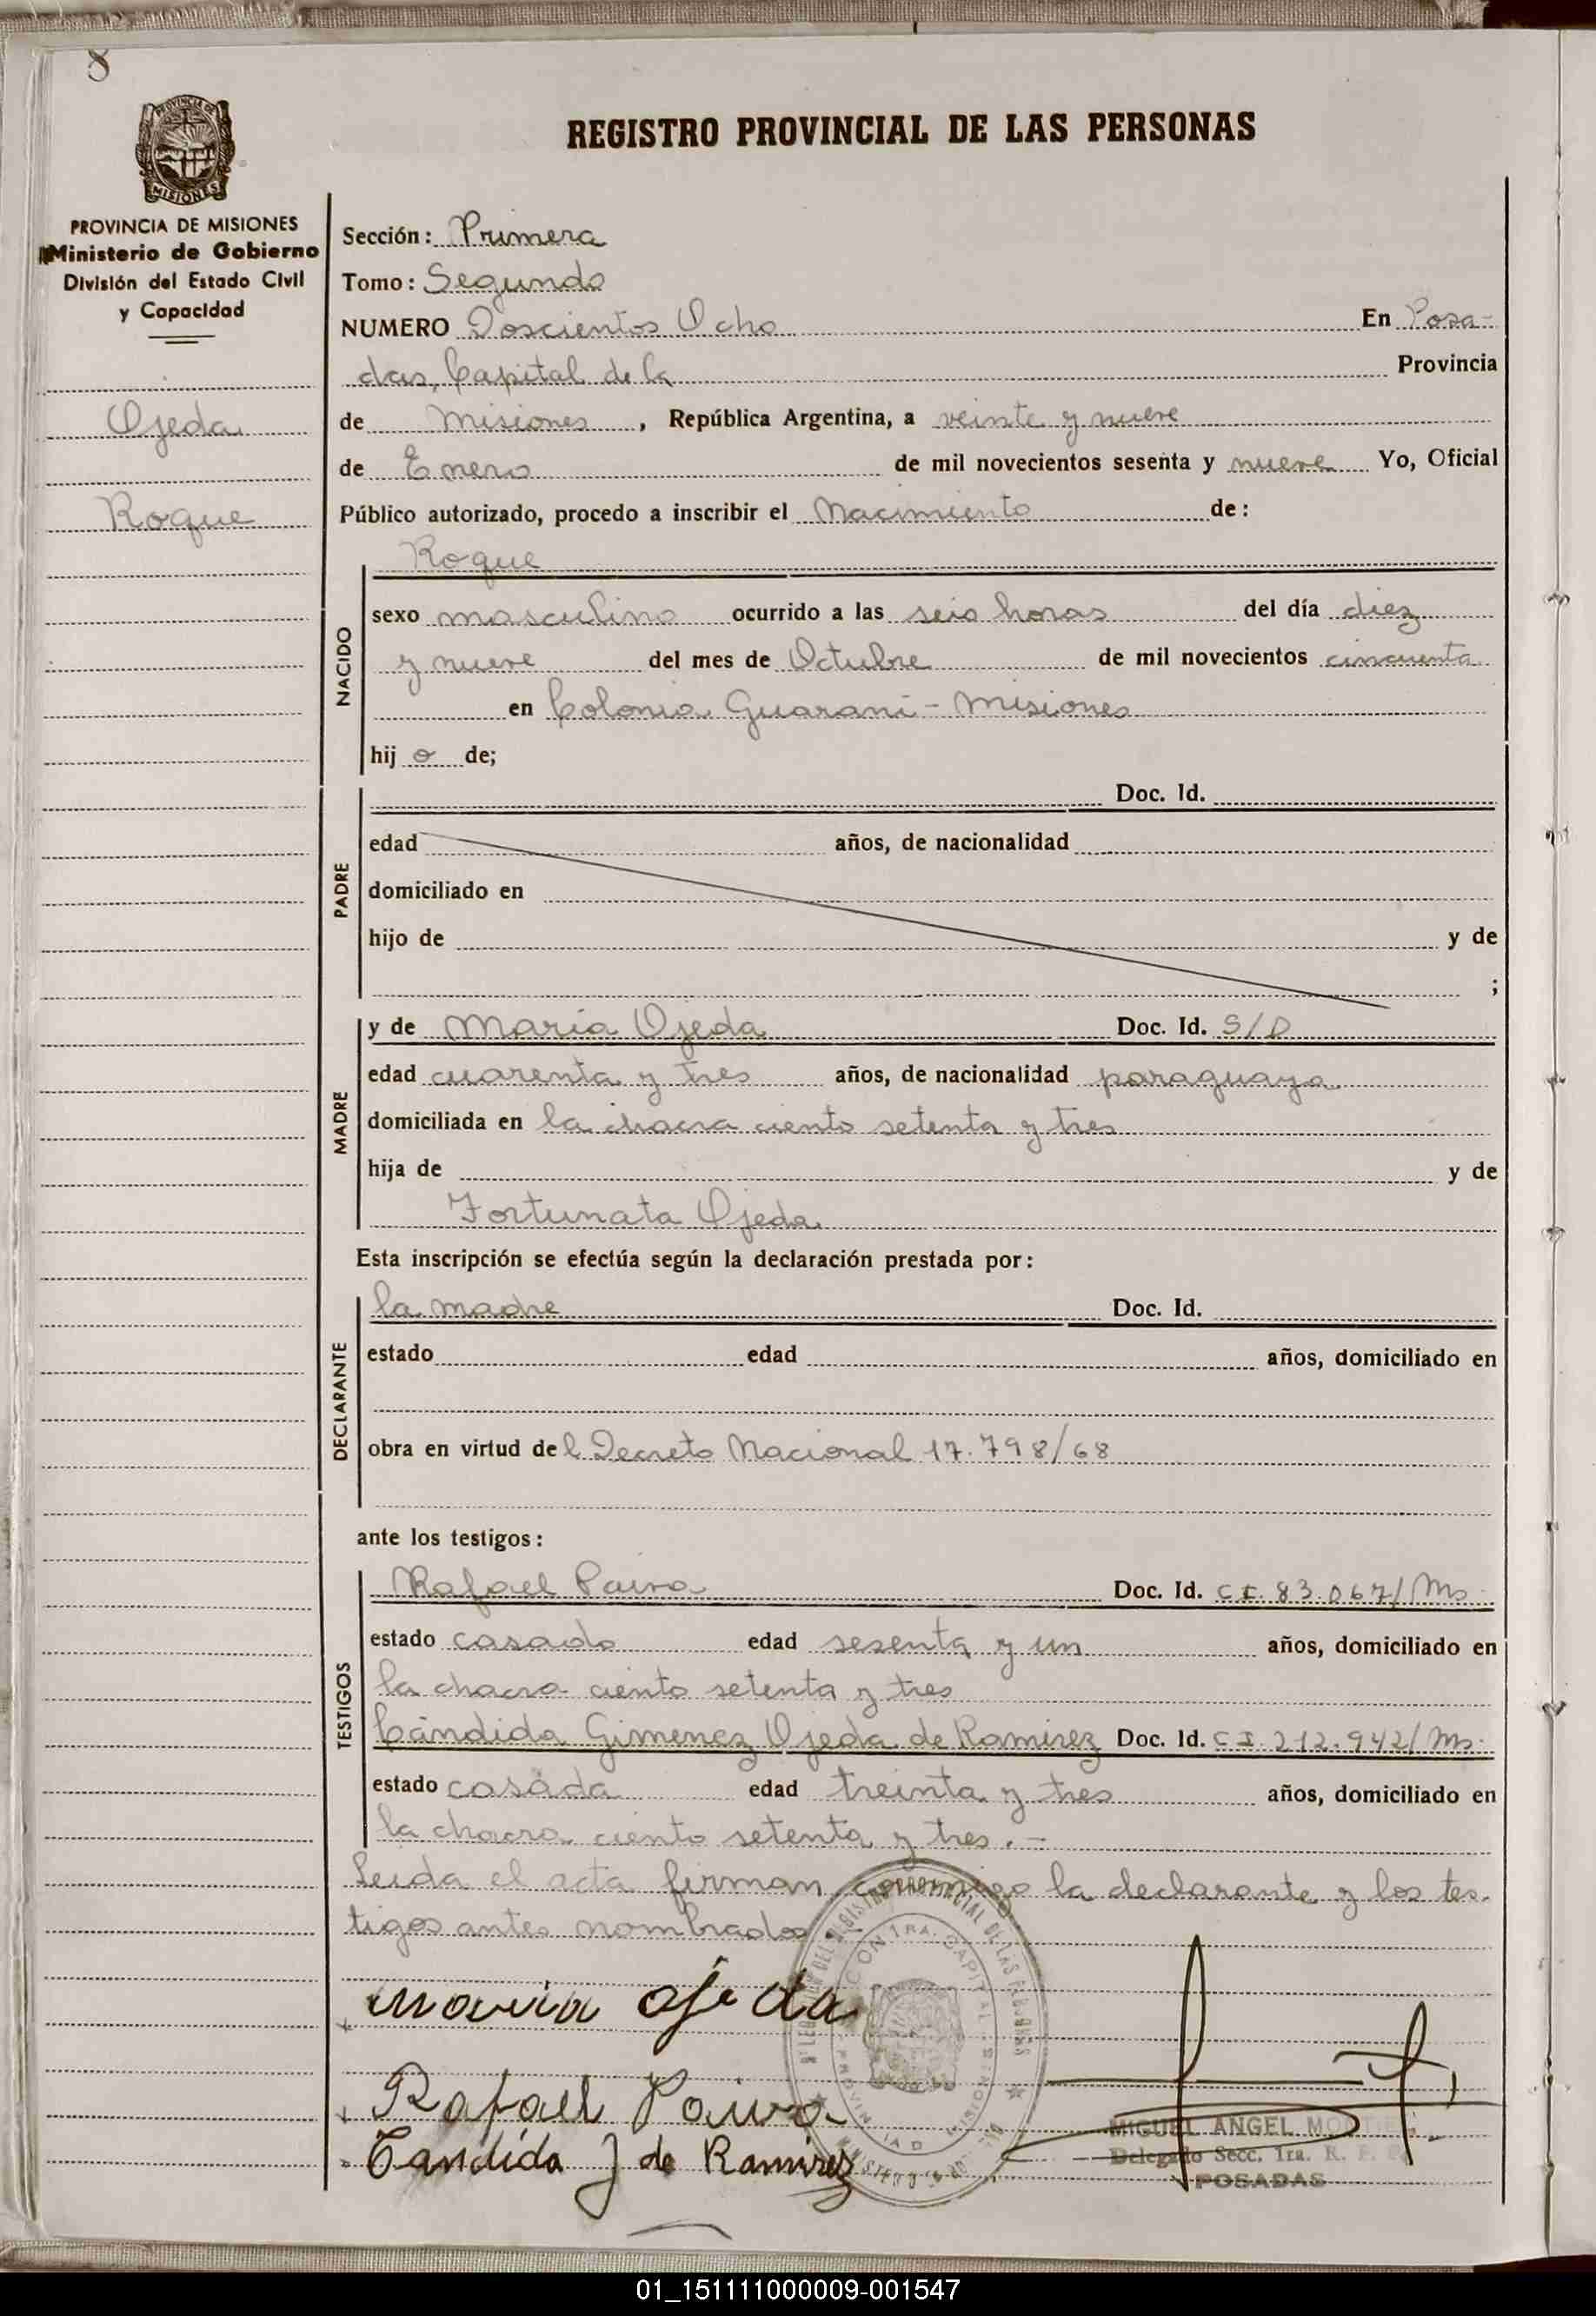 8
REGISTRO PROVINCIAL DE LAS PERSONAS
PROVINCIA DE MISIONES
PROVINCIA DE MISIONES
Ministerio de Gobierno
División del Estado Civil
y Capacidad
Ojeda
Roque
Sección: Primera
Tomo: Segundo
NUMERO Doscientos Ocho En Posa-
das, Capital de la Provincia
de Misiones, República Argentina, a veinte y nueve
de Enero de mil novecientos sesenta y nueve Yo, Oficial
Público autorizado, procedo a inscribir el Nacimiento de:
Roque
NACIDO
sexo masculino ocurrido a las seis horas del día diez
y nueve del mes de Octubre de mil novecientos cincuenta
en Colonia Guarani - Misiones
hij o de;
PADRE
Doc. Id.
edad años, de nacionalidad
domiciliado en
hijo de y de
;
MADRE
y de María Ojeda Doc. Id. S/D
edad cuarenta y tres años, de nacionalidad paraguaya
domiciliada en la chacra ciento setenta y tres
hija de y de
Fortunata Ojeda
Esta inscripción se efectúa según la declaración prestada por:
DECLARANTE
la madre Doc. Id.
estado edad años, domiciliado en
obra en virtud de l Decreto Nacional 17.798/68
ante los testigos:
TESTIGOS
Rafael Paiva Doc. Id. C.I. 83.067/Ms.
estado casado edad sesenta y un años, domiciliado en
la chacra ciento setenta y tres
Cándida Gimenez Ojeda de Ramirez Doc. Id. C.I. 212.942/Ms.
estado casada edad treinta y tres años, domiciliado en
la chacra ciento setenta y tres.-
Leida el acta firman conmigo la declarante y los tes-
tigos antes nombrados
maria ojeda
Rafael Paiva
Candida J de Ramirez
MIGUEL ANGEL
Delegado Secc. 1ra. R. P.
POSADAS
01_151111000009-001547